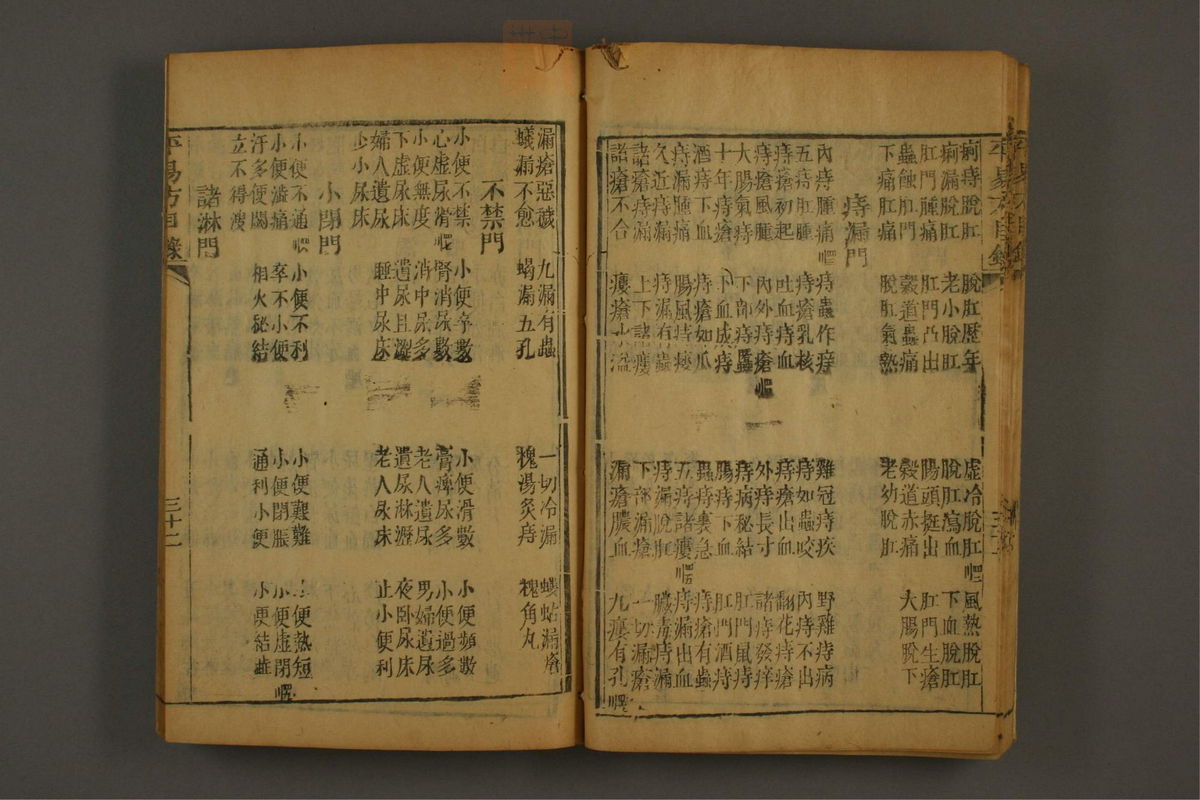 痢痔脫肛 脫肛歷年 虛冷脫肛 風熱脫肛
痢漏脫肛 老小脫肛 脫肛瀉血 下血脫肛
肛門腫痛 肛門凸出 腸頭挺出 肛門生瘡
蟲蝕肛門 穀道蟲痛 穀道赤痛 大腸脫下
下痛肛痛 脫肛氣熱 老幼脫肛
痔漏門
內痔腫痛 痔蟲作痒 雞冠痔疾 野雞痔病
五痔肛腫 痔瘡乳核 痔如蟲咬 內痔不出
痔瘡初起 吐血痔血 痔瘡出血 翻花痔瘡
痔瘡風腫 內外痔瘡 外痔長寸 諸痔發痒
大腸氣痔 下部痔䘌 痔病秘結 肛門鼠痔
十年痔瘡 下血成痔 痔腸下血 肛門酒痔
酒痔下血 痔瘡如瓜 蟲痔裏急 痔瘡有蟲
痔漏腫痛 腸風痔瘻 五痔諸瘻 痔漏出血
久近痔漏 痔漏有蟲 痔漏脫肛 臟毒痔漏
諸瘡痔漏 上下諸瘻 下部漏瘡 一切漏瘡
諸瘡不合 瘻瘡水溢 漏瘡膿血 九瘻有孔
漏瘡惡穢 九漏有蟲 一切冷漏 螻蛄漏瘡
蟻漏不愈 蝎漏五孔 槐湯灸痔 槐角丸
不禁門
小便不禁 小便卒數 小便滑數 小便頻數
心虛尿滑 腎消尿數 膏痺尿多 小便過多
小便無度 消中尿多 老人遺尿 男婦遺尿
下虛尿床 遺尿且澀 遺尿淋瀝 夜臥尿床
婦人遺尿 睡中尿床 老人尿床 止小便利
少小尿床
小閉門
小便不通 小便不利 小便艱難 小便熱短
小便濇痛 卒不小便 小便閉脹 小便虛閉
汗多便閟 相火秘結 通利小便 小便結澁
立不得溲
諸淋門
平易方目錄 三十二